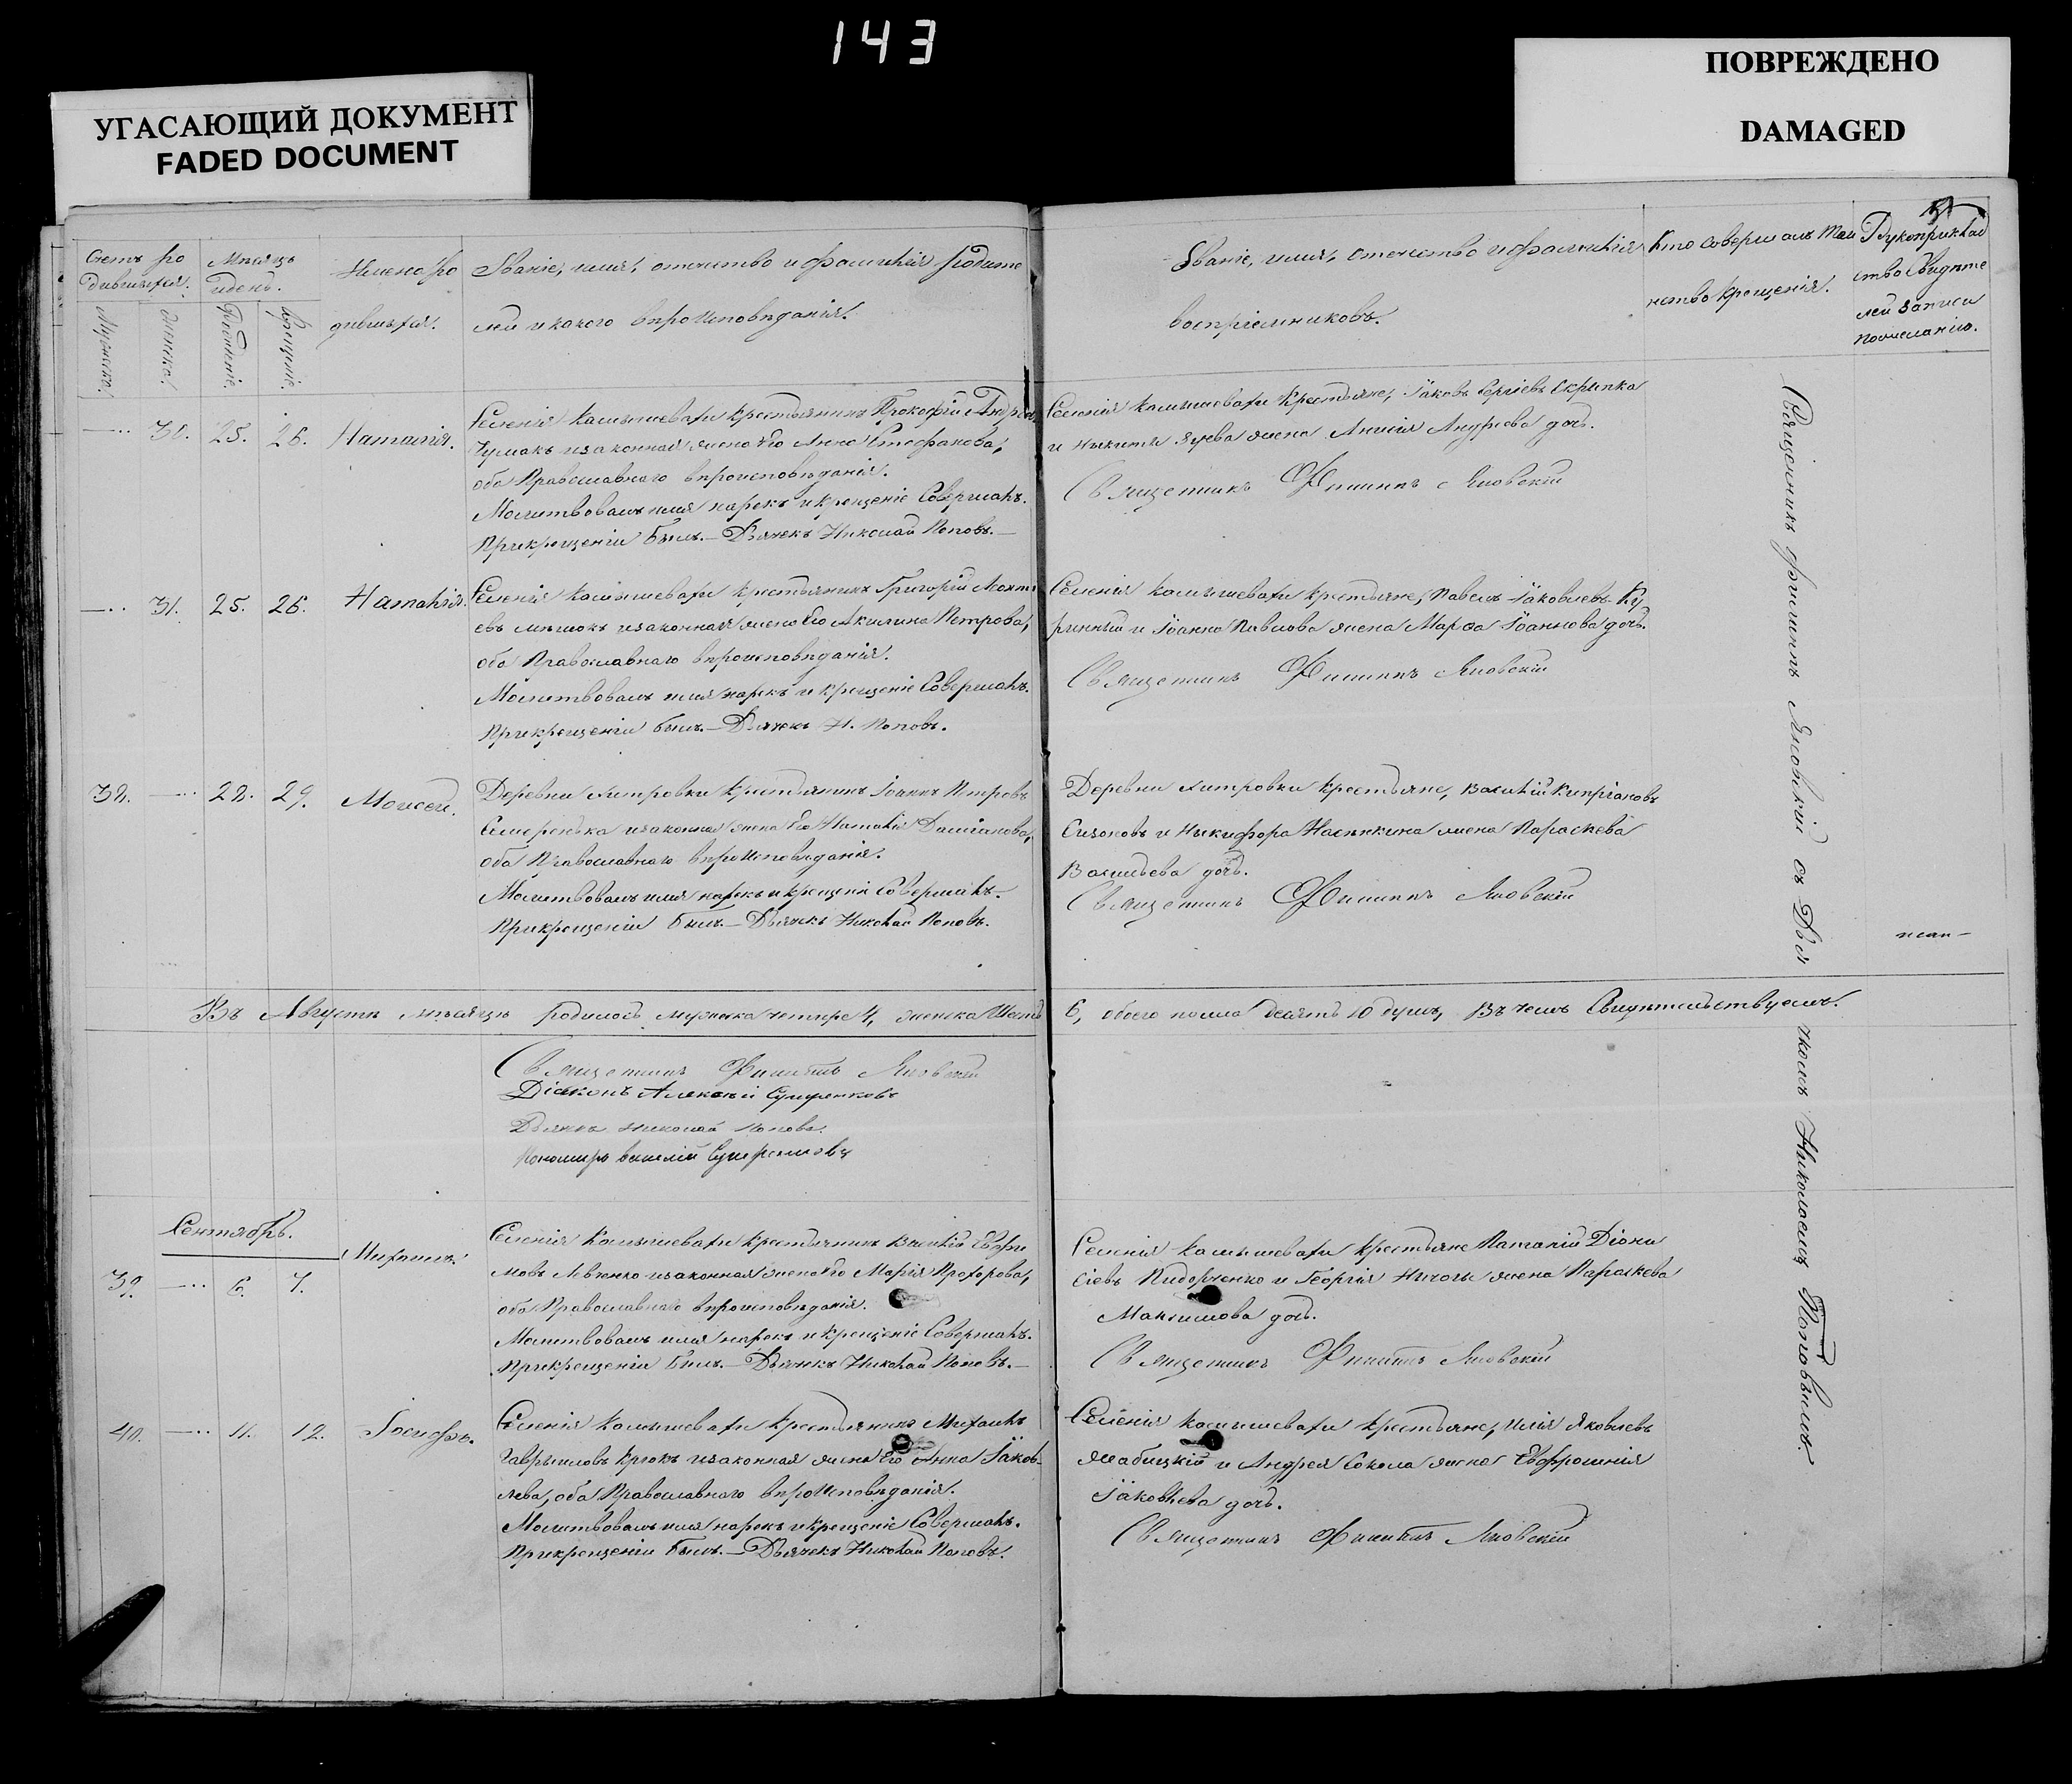 143
УГАСАЮЩИЙ ДОКУМЕНТ
FADED DOCUMENT
ПОВРЕЖДЕНО
DAMAGED
Счетъ ро
дившихся.
Мѣсяцъ
идень.
Имена ро
дившихся.
Званіе, имя, отечество и фамилія родите
лей и какого вѣроисповѣданія.
Мужеска.
женска.
Рожденіе.
Крещеніе.
Званіе, имя, отечество и фамилія
воспріемниковъ.
Кто совершалъ таи
нство крещенія.
Рукоприклад
ство Свидѣте
лей записи
пожеланію.
30. 25. 26. Наталія.
Селенія Камышевахи крестьянинъ Прокофій Андреевъ
Чумакъ изаконная жена его Анна Стефанова,
оба Православнаго вѣроисповѣданія.
Молитвовалъ имя нарекъ и крещеніе Совершалъ.
Прикрещеніи былъ.— Дьячекъ Николай Поповъ.—
Селенія Камышевахи крестьяне, Іаковъ Сергіевъ Скрипка
и Никиты жена Андрѣева дочь.
Священникъ Филиппъ Яновскій
31. 25. 26. Наталія.
Селенія Камышевахи крестьянинъ Григорій Леонті
евъ Мѣшокъ изаконная жена его Акилина Петрова,
оба Православнаго вѣроисповѣданія.
Молитвовалъ имя нарекъ и крещеніе Совершалъ.
Прикрещеніи былъ.— Дьячекъ Н. Поповъ.
Селенія Камышевахи крестьяне, Павелъ Іаковлевъ Ку
ринный и Іоанна Павлова жена Марфа Іоаннова дочь.
Священникъ Филиппъ Яновскій
38. 28. 29. Моисей.
Деревни крестьянинъ Іоаннъ Петровъ
Семеренька изаконная жена его Наталія Даміанова,
оба Православнаго вѣроисповѣданія.
Молитвовалъ имя нарекъ и крещеніе Совершалъ.
Прикрещеніи былъ.— Дьячекъ Николай Поповъ.
Деревни крестьяне, Василій Кипріановъ
Сизоновъ и Никифора жена Параскева
Васильева дочь.
Священникъ Филиппъ Яновскій
Въ Августѣ мѣсяцѣ родилось мужеска четыре 4, женска Шесть
6, обоего полла десять 10 душъ, Въ чемъ Свидѣтельствуемъ.
Священникъ Филиппъ Яновскій
Діаконъ Алексѣй
Дьячекъ Николай Поповъ.
Пономарь Василій
Сентябрь.
39. 6. 7. Михаилъ.
Селенія Камышевахи крестьянинъ Василій Ефи
мовъ Левченко изаконная жена его Марія Прохорова,
оба Православнаго вѣроисповѣданія.
Молитвовалъ имя нарекъ и крещеніе Совершалъ.
Прикрещеніи былъ.— Дьячекъ Николай Поповъ.—
Селенія Камышевахи крестьяне Наталій Діони
сіевъ Пидорченко и Георгія жена Параскева
Максимова дочь.
Священникъ Филиппъ Яновскій
40. 11. 12. Іосифъ.
Селенія Камышевахи крестьянинъ Михаилъ
Гавриловъ Крюкъ изаконная жена его Анна Іаков-
лева, оба Православнаго вѣроисповѣданія.
Молитвовалъ имя нарекъ и крещеніе Совершалъ.
Прикрещеніи былъ.— Дьячекъ Николай Поповъ.
Селенія Камышевахи крестьяне, Илія Яковлевъ
Жабицкій и Андрея Сокола жена Евфросинія
Іаковлева дочь.
Священникъ Филиппъ Яновскій
Священникъ Филиппъ Яновскій съ Дья
чкомъ Николаемъ Поповымъ.